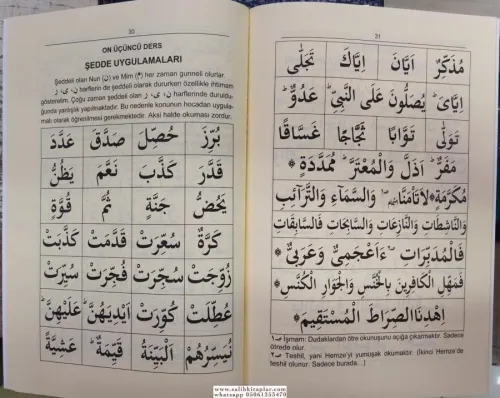 30
ON ÜÇÜNCÜ DERS
ŞEDDE UYGULAMALARI
Şeddeli olan Nun (ن) ve Mim (م) her zaman gunneli olurlar.
harflerin de şeddeli olarak dururken özellikle ihtimam
gösterelim. Çoğu zaman şeddeli olan ن ، ى ، ر harflerinde duruldu-
ğunda yanlışlık yapılmaktadır. Bu nedenle konunun hocadan uygula-
malı olarak öğrenilmesi gerekmektedir. Aksi halde okuması zordur.
بُرِّزَ حُصِّلَ صَدَّقَ عَدَّدَ
قَدَّرَ كَذَّبَ نَعَّمَ يَظُنُّ
يَحُضُّ جَنَّةٍ ثُمَّ قُوَّةٍ
كَرَّةٌ سُعِّرَتْ قَدَّمَتْ كَذَّبَتْ
زُوِّجَتْ سُجِّرَتْ فُجِّرَتْ سُيِّرَتْ
عُطِّلَتْ كُوِّرَتْ اَيْدِيَهُنَّ عَلَيْهِنَّ
نُيَسِّرُهُمْ اَلْبَيِّنَةُ قَيِّمَةٌ عَشِيَّةً
31
مُذَكِّرٌ اَيَّانَ اِيَّاكَ تَجَلّٰى
اِيَّاىَ يُصَلُّونَ عَلَى النَّبِىِّ عَدُوٌّ
تَوَلّٰى تَوَّابًا ثَجَّاجًا غَسَّاقًا
مَفَرٌّ اَذَلَّ وَالْمُعْتَرَّ مُمَدَّدَةٍ
مُكَرَّمَةٍ لَاتَأْمَنَّا وَالسَّمَاءِ وَالتَّرَآئِبِ
وَالنَّاشِطَاتِ وَالنَّازِعَاتِ وَالسَّابِحَاتِ فَالسَّابِقَاتِ
فَالْمُدَبِّرَاتِ ءَاَعْجَمِىٌّ وَعَرَبِىٌّ
فَمَهِّلِ الْكَافِرِينَ بِالْخُنَّسِ وَالْجَوَارِ الْكُنَّسِ
اِهْدِنَا الصِّرَاطَ الْمُسْتَقِيمَ
İşmam: Dudaklardan ötre okunuşunu açığa çıkarmaktır. Sadece
ötrede olur.
Teshil, yani Hemze'yi yumuşak okumaktır. (İkinci Hemze'de
teshil olunur. Sadece burada...)
www.salihkitaplar.com
whatsapp 05061255470